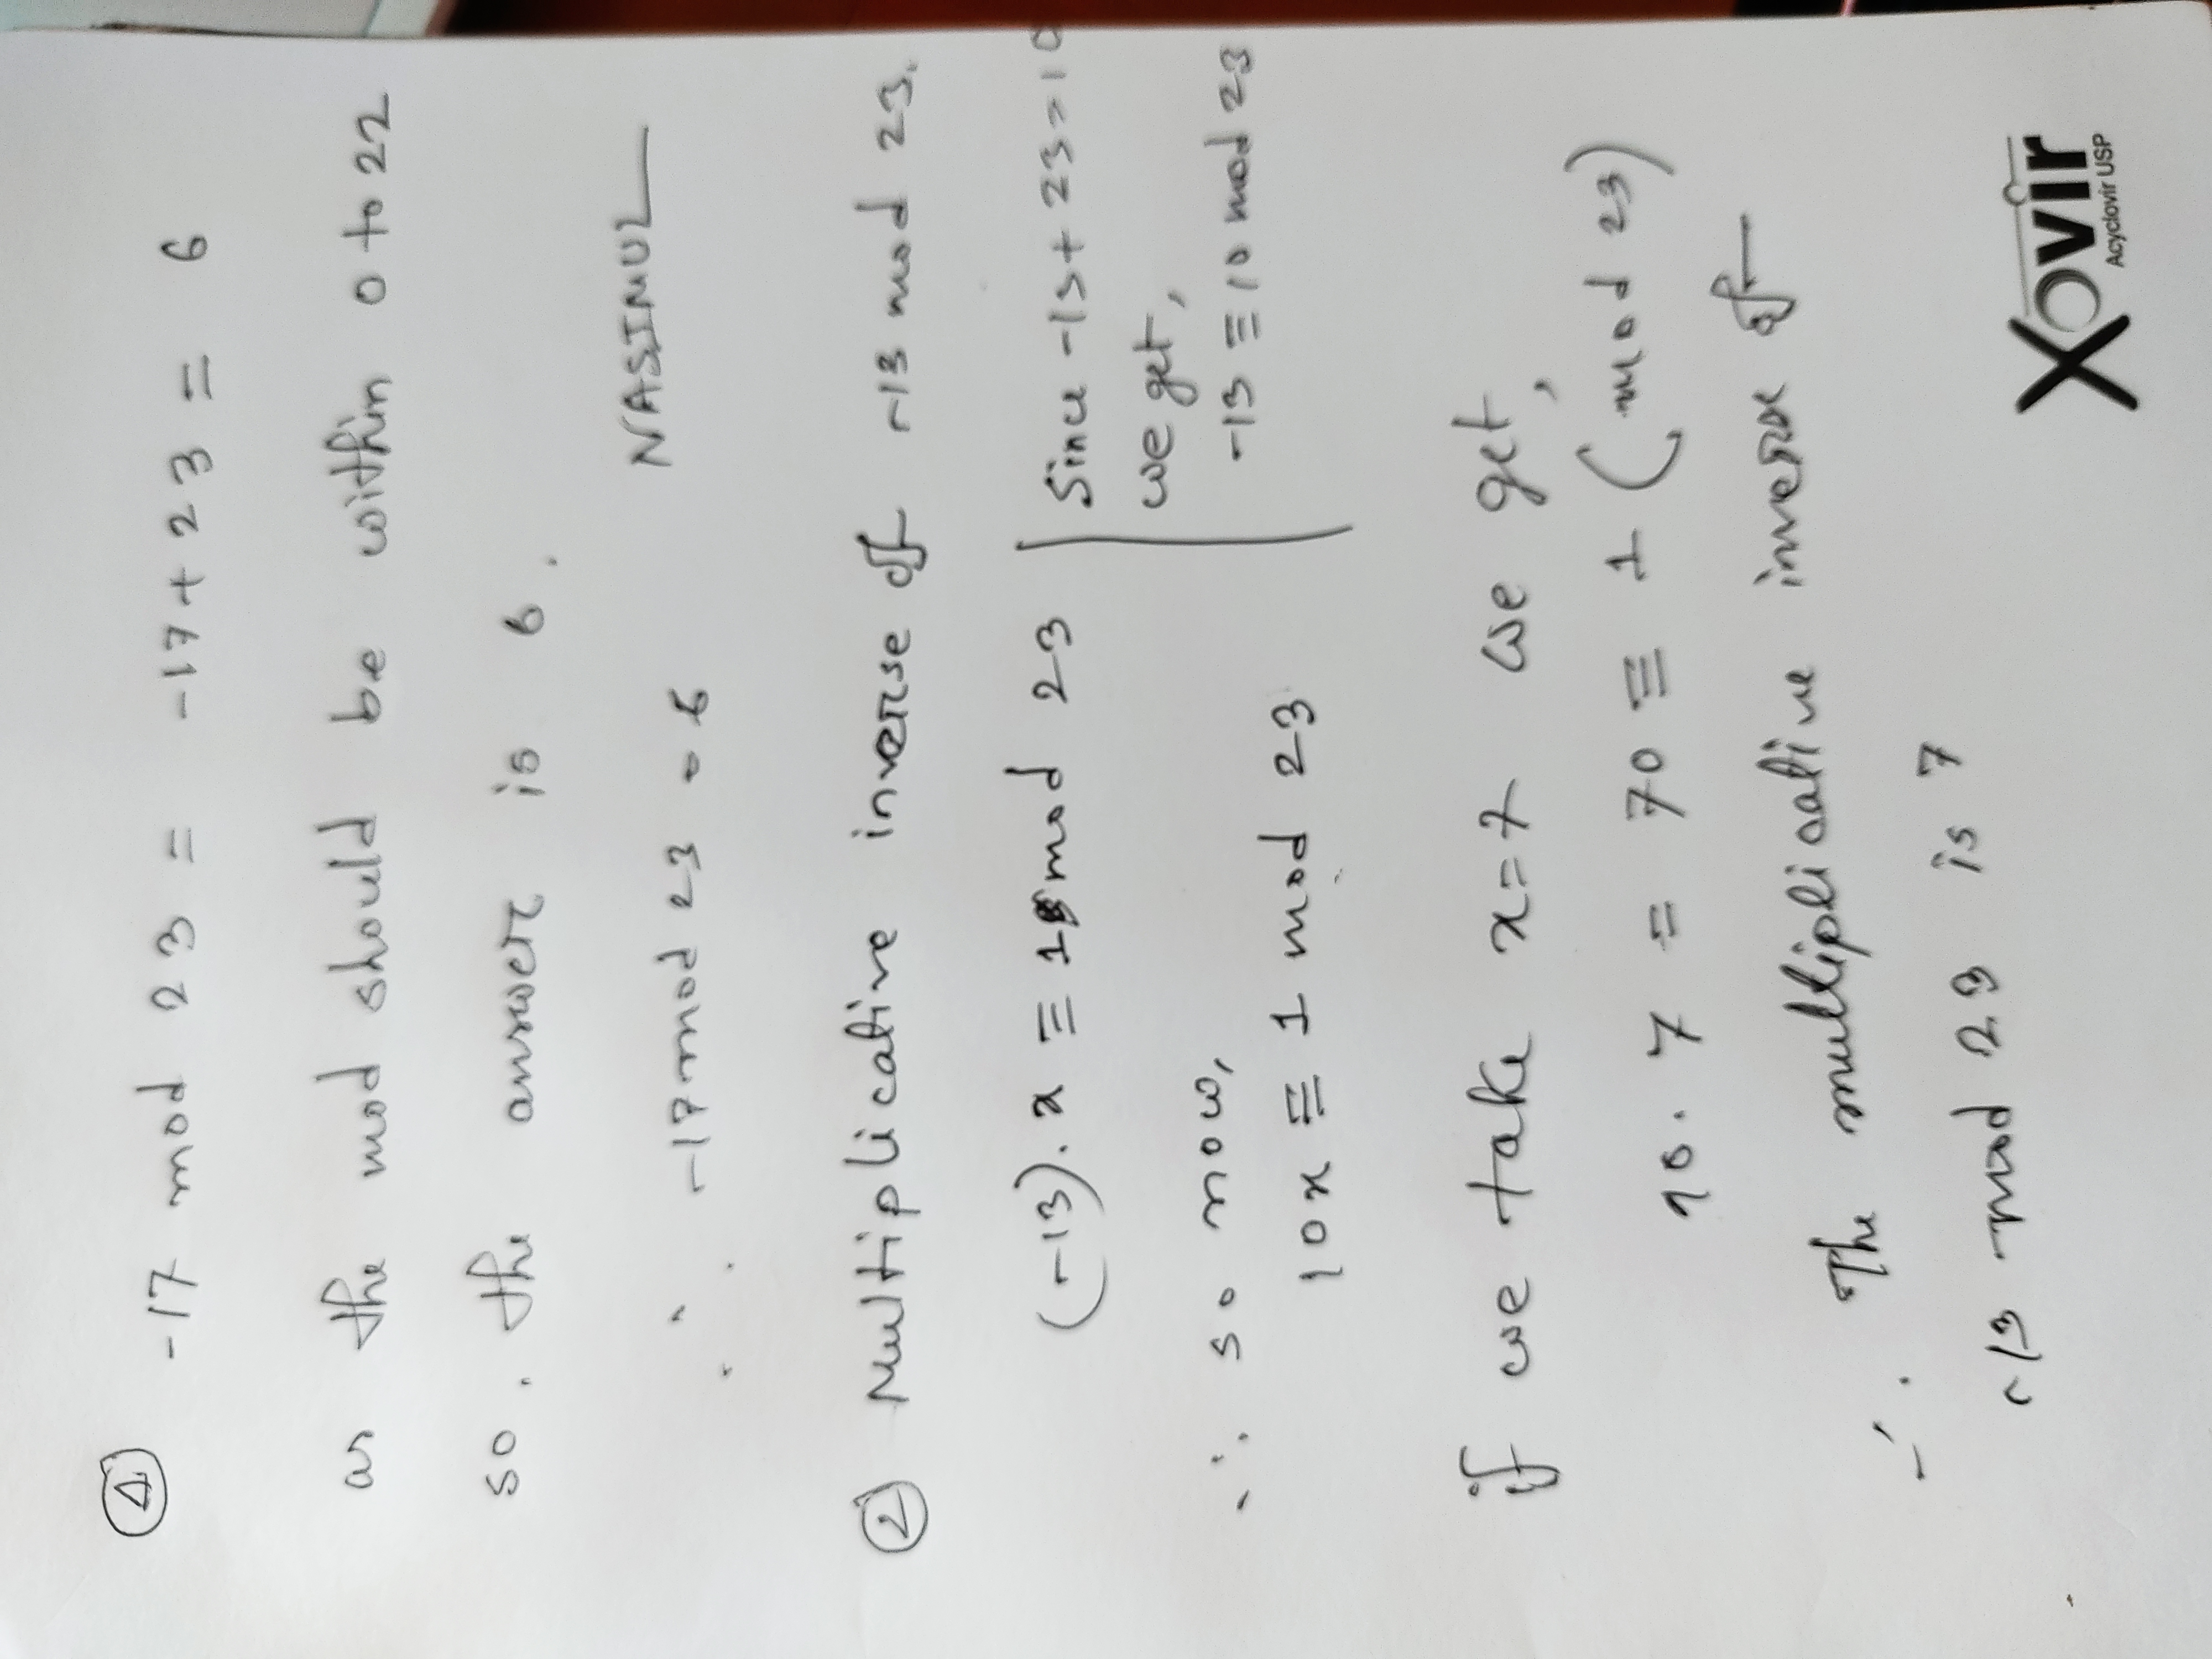 1
-17 mod 23 = -17+23 = 6
as the mod should be within 0 to 22
so, the answer is 6.
NASIMUL
∴ -17 mod 23 = 6
2 Multiplicative inverse of -13 mod 23.
(-13). x ≡ 1 mod 23
Since -13+23=10
we get,
-13 ≡ 10 mod 23
∴ so now,
10x ≡ 1 mod 23
if we take x=7 we get,
10. 7 = 70 ≡ 1 (mod 23)
∴ The multiplicative inverse of
-13 mod 23 is 7
Xovir
Acyclovir USP